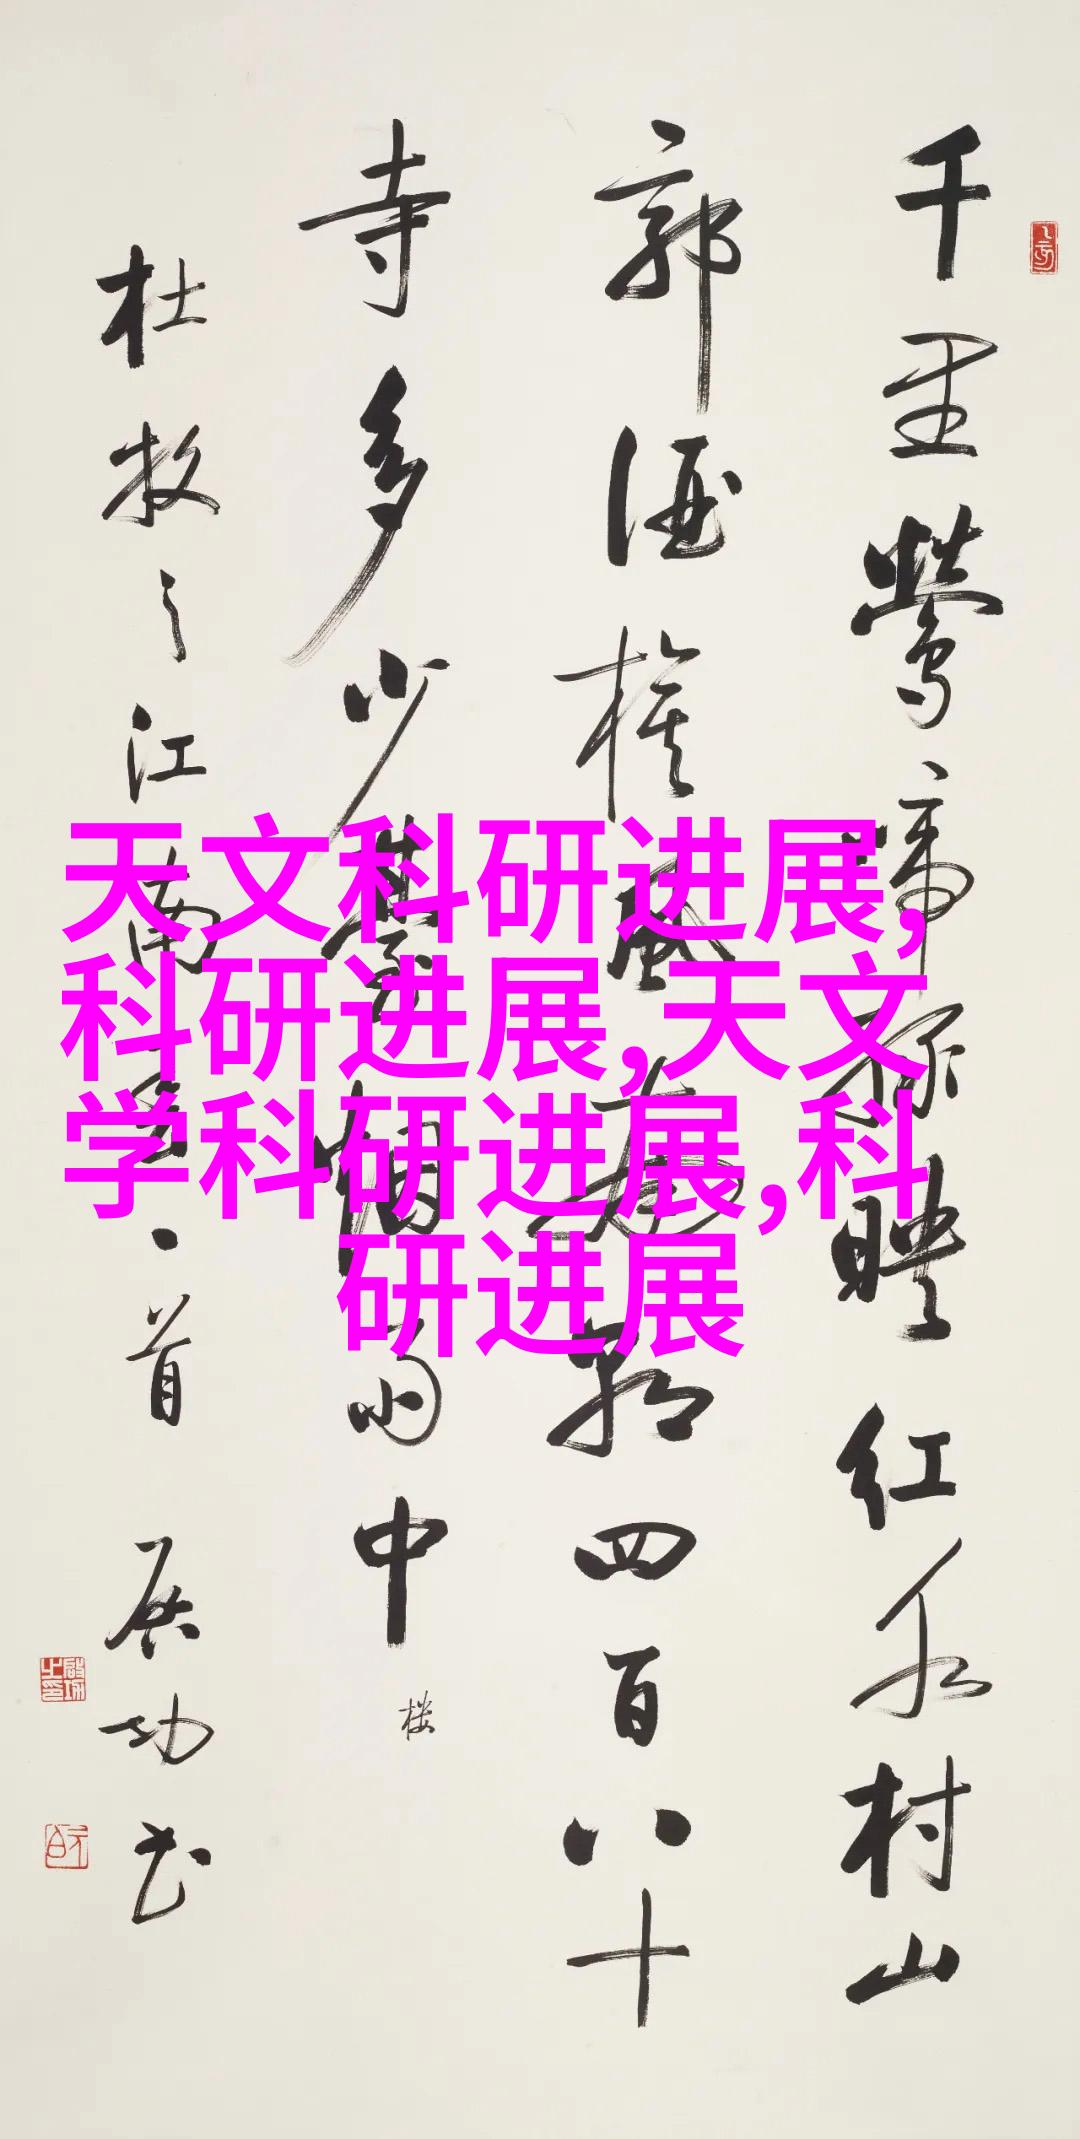 千里鶯啼綠映紅水村山
郭酒旗風南朝四百八十
寺多少臺烟雨中
楼
杜牧之江南春一首 启功书
天文科研进展,
科研进展,天文
学科研进展,科
研进展